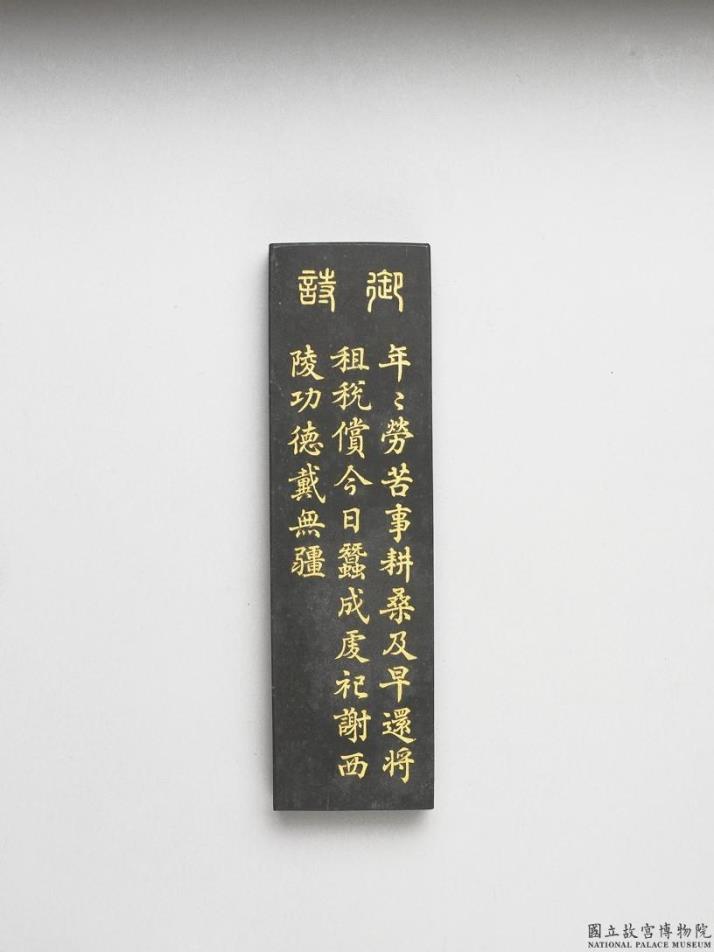 御詩
年〻勞苦事耕桑及早還將
租稅償今日蠶成虔祀謝西
陵功德戴無疆
國立故宮博物院
NATIONAL PALACE MUSEUM